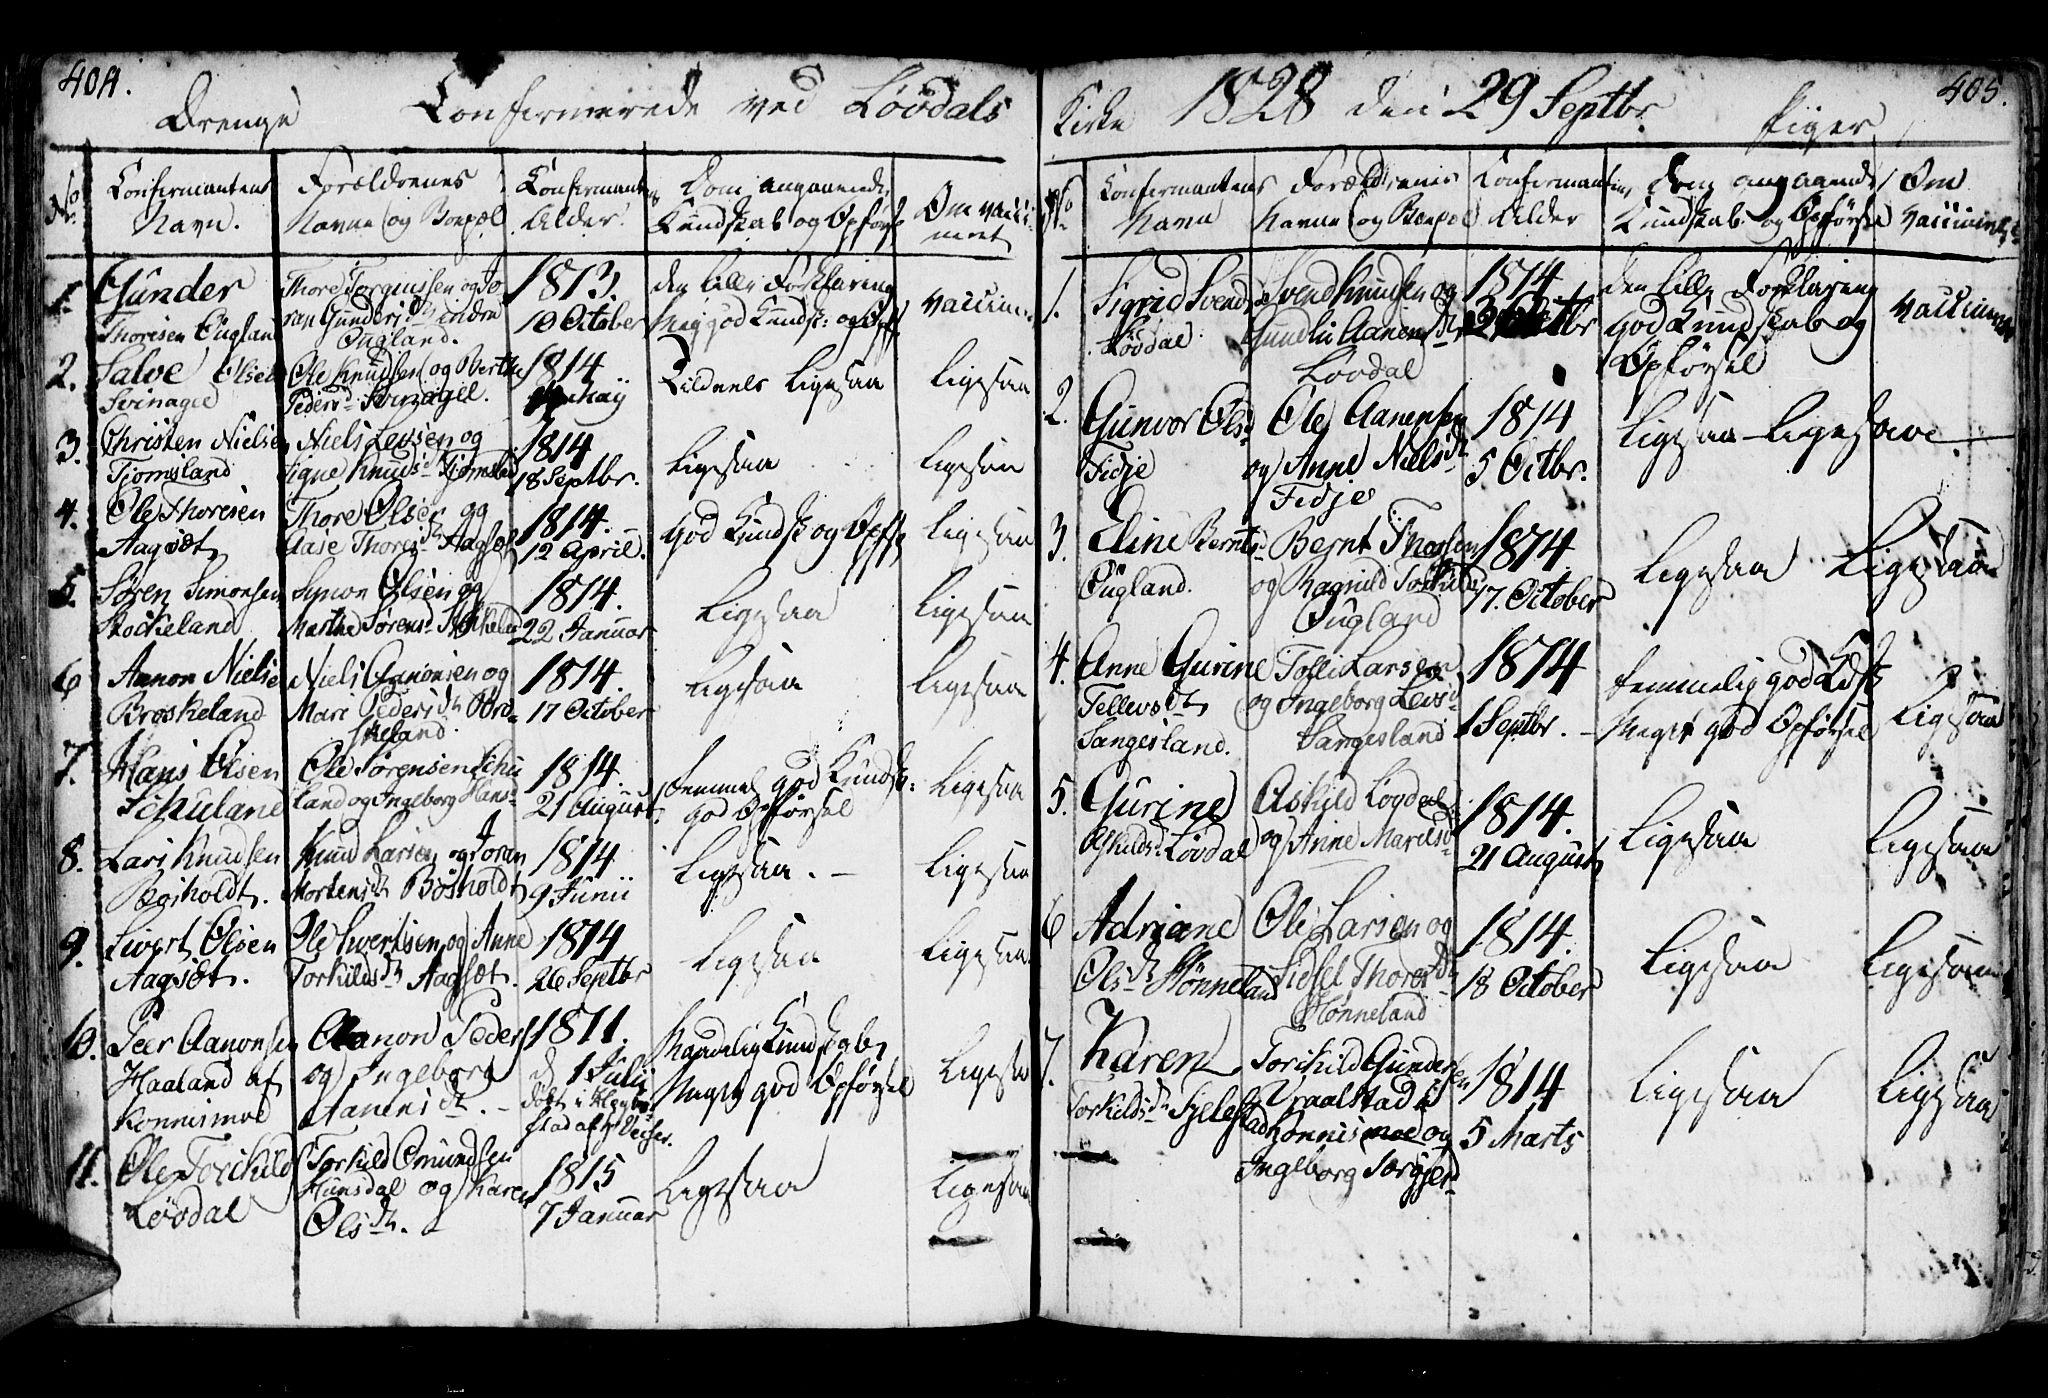 404.
Drenge Confirmerede ved Løvdals
No
Confirmantens Navn.
Forældrenes Navne og Boepæl
Confirmantens Alder.
Dom angaaende Kundskab og Opførs
Om vacci-
neret
1.
Gunder
Thoresen Øugland
Thore Torgiusen og Jo
ran Gundersdtr indre
Øugland.
1813.
10 October
den lille Forklaring
Meg god Kundsk: og Opf
vaccineret
2.
Salve Olsen
Svinagel
Ole Knudsen og Berthe
Pedersd Svinagel.
1814
Maij
Ligesaa
Ligesaa
3.
Christen Nielsen
Tjomsland
Niels Levsen og
Signe Knudsd Tjomsland
1814
18 Septbr.
Ligesaa
Ligesaa
4.
Ole Thoresen
Aagsæt
Thore Olsen og
Aase Thoresdtr Aagsæt
1814.
12 April.
God Kundsk og Opfs
Ligesaa
5.
Søren Simonsen
Stockeland
Symon Olsen og
Marthe Sørensd Stokeland
1814.
22 Januar
Ligesaa
Ligesaa
6
Aanon Nielse
Brøskeland
Niels Aanonsen og
Mari Pedersdtr Brø-
skeland.
1814.
17 October
Ligesaa
Ligesaa
7.
Hans Olsen
Schuland
Ole Sørensen Schu
land og Ingeborg Hans-
1814.
21 August
temmel god Kundsk:
god Opførsel
Ligesaa
8.
Lars Knudsen
Bosholdt.
Knud Larsen og Joran
Mortensdtr Bosholdt
1814
9 Junii
Ligesaa. -
Ligesaa
9.
Sivert Olsen
Aagsæt.
Ole Sivertsen og Anne
Torkildsdtr Aagsæt.
1814
26 Septbr
Ligesaa
Ligesaa
10.
Peer Aanonsen
Haaland af
Konnismoe
Aanon Peders
og Ingeborg
Aanensdtr. -
1811.
d 1 Julij
Maadelig Kundskab,
Meget god Opførsel
Ligesaa
11.
Ole Torchild
Løvdal
Torkild Omundsen
Hunsdal og Karen
Olsdtr. -
1815
7 Januar
Ligesaa
Ligesaa
405.
Kirke 1828 den 29 Septbr. Piger
No
Confirmantens Navn
Forældrenes Navne og Boepæl
Confirmantens Alder
Dom angaaende Kundskab og Opførsel
Om vaccineret
1.
Sigrid Svends
Løvdal
Svend Knudsen og
Gunvld Aanensdtr
Løvdal
1814
den lille Forklaring
God Kundskab og
Opførsel
vaccineret
2.
Gunvor Olsd
Fidje
Ole Aanensen
og Anne Nielsdtr
Fidje
1814
5 Octbr.
Ligesaa
Ligesaae.
3.
Eline Berntsd
Øugland.
Bernt Thorsen
og Ragnild Torkilds
Øugland
1814
17. October
Ligesaa
Ligesaa
4.
Anne Gurine
Tellevsdtr
Sangesland.
Tolli Larsen
og Ingeborg Levsd
Sangesland
1814
1 Septbr. -
temmelig god Kdsk
Meget god Opførsel
Ligesaa
5.
Gurine
Askildsd Løvdal
Askild Løvdal
og Anne Marilsd
1814.
21 August
Ligesaa
Ligesaa
6
Adriane
Olsdtr Hønneland
Ole Larsen og
Sidsel Thoresdtr
Hønneland
1814.
18 October
Ligesaa
Ligesaa
7.
Karen
Torkildsdtr Sjelestad
Torchild Gundersen
Vraalstad i
Konnismoe og
Ingeborg Torgjer-
1814
5 Marts
Ligesaa
Ligesaa